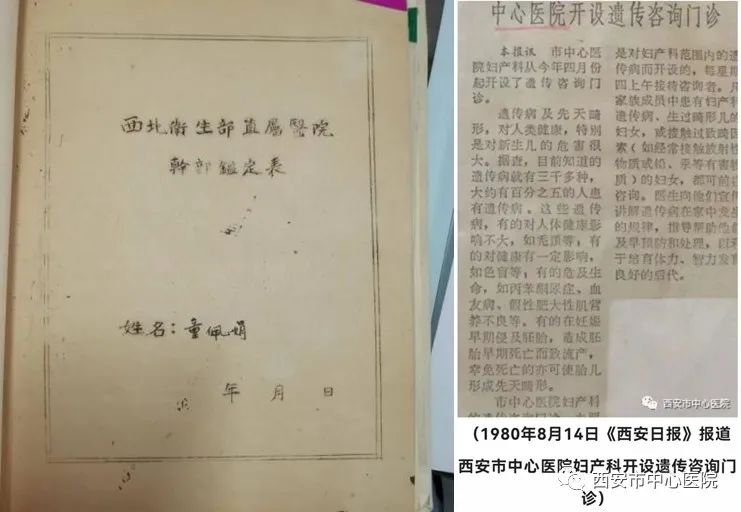 西北衛生部直屬醫院
幹部鑑定表
姓名：童佩娟
年 月 日
中心医院开设遗传咨询门诊
本报讯 市中心医
院妇产科从今年四月份
起开设了遗传咨询门
诊。
遗传病及先天畸
形，对人类健康，特别
是对新生儿的危害很
大。据查，目前知道的
遗传病就有三千多种，
大约有百分之五的人患
有遗传病。这些遗传
病，有的对人体健康影
响不大，如秃顶等；有
的对健康有一定影响，
如色盲等；有的危及生
命，如丙苯酮尿症、血
友病、假性肥大性肌营
养不良等。有的在妊娠
早期侵及胚胎，造成胚
胎早期死亡而致流产，
幸免死亡的亦可使胎儿
形成先天畸形。
市中心医院妇产科
是对妇产科范围内的遗
传病而开设的，每星期
四上午接待咨询者。凡
家族成员中患有妇产科
遗传病、生过畸形儿的
妇女，或接触过致畸因
素（如经常接触放射性
物质或铅、汞等有害物
质）的妇女，都可前往
咨询。医生向他们宣传
讲解遗传病在家中发生
的规律，指导帮助他们
及早预防和处理，以利
于培育体力、智力发育
良好的后代。
西安市中心医院
（1980年8月14日《西安日报》报道
西安市中心医院妇产科开设遗传咨询门
诊）
西安市中心医院